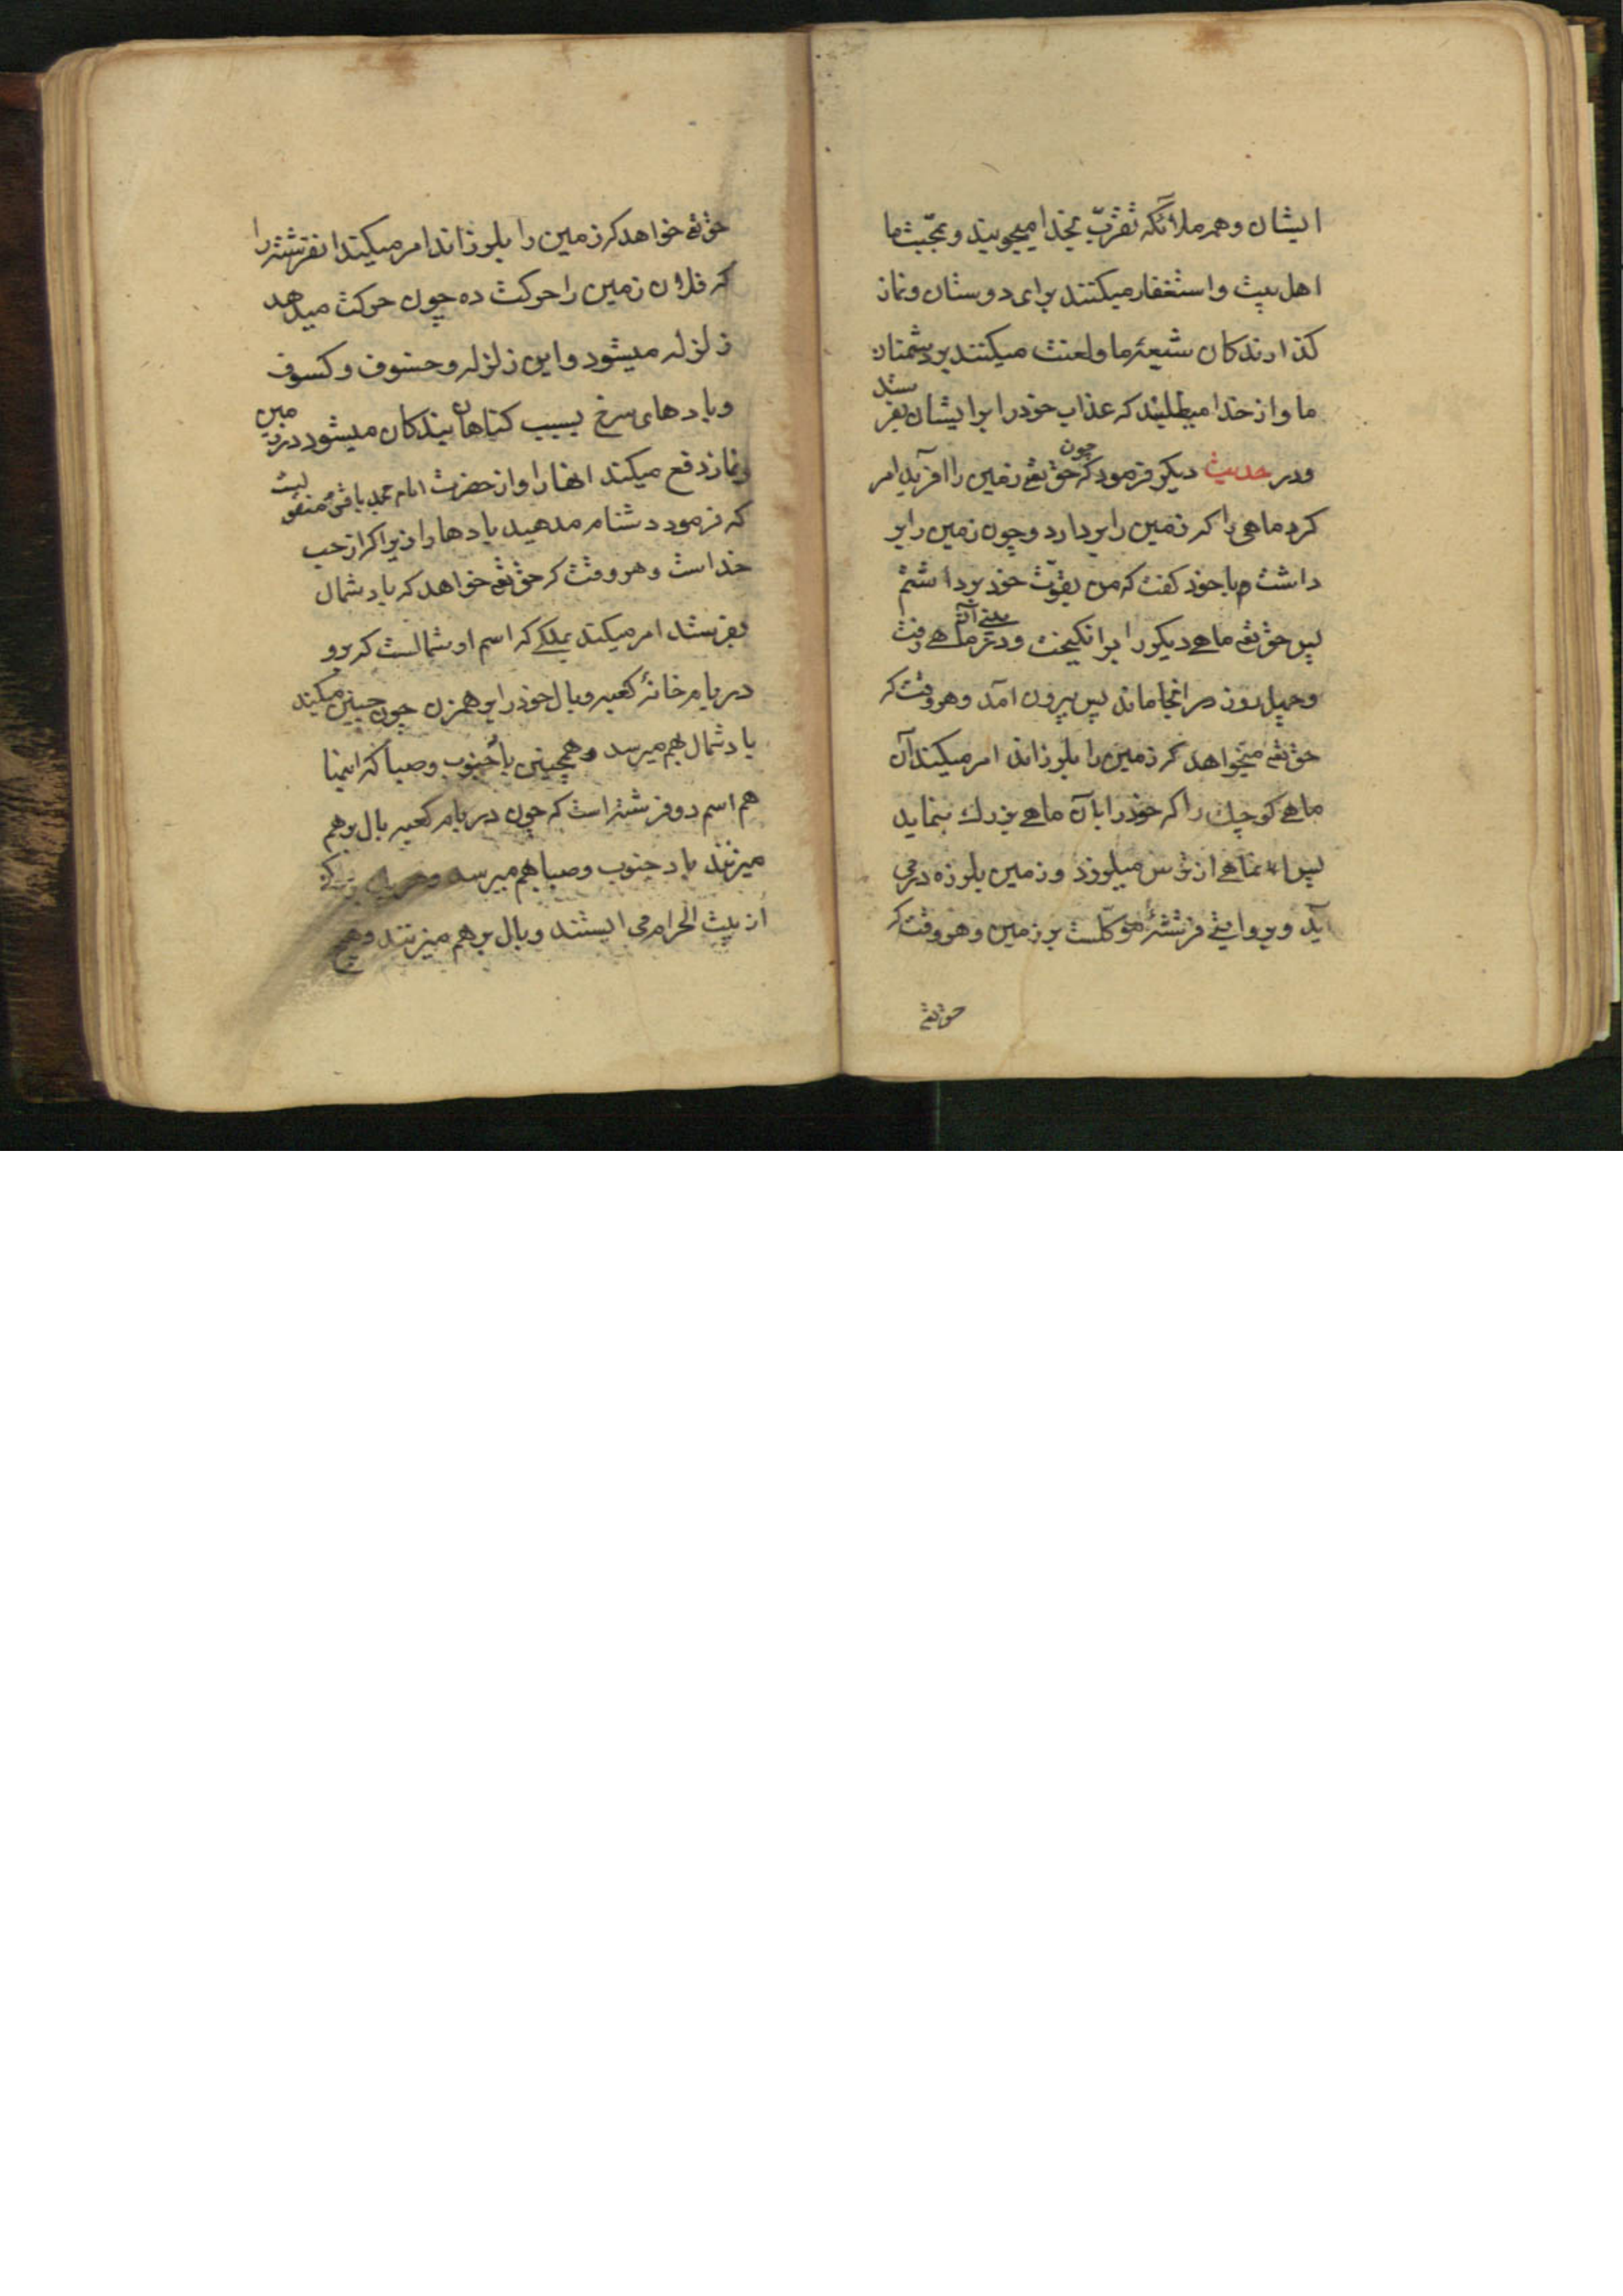 ایشان و همه ملائکه تقرّب بخدا میجویند و بمحبّت ما
اهل بیت و استغفار میکنند برای دوستان و نماز
کذارندکان شیعهٔ ما و لعنت میکنند بر دشمنان
ما و از خدا میطلبند که عذاب خود را بر ایشان بفر
ستد
و در حدیث دیکر فرمود که چون حق تعٰ زمین را افرید امر
کرد ماهی را که زمین را بردارد و چون زمین را بر
داشت با خود کفت که من بقوّت خود برداشتم
پس حق تعٰ ماهے دیکر را بر انکیخت و در بینے آن ماهے رفت
و چهل روز در انجا ماند پس بیرون امد و هر وقت که
حق تعٰ میخواهد که زمین را بلرزاند امر میکند آن
ماهے کوچک را که خود را بان ماهے بزرك بنماید
پس ان ماهے از ترس میلرزد و زمین بلرزه در می
آید و بروایتے فرشتهٔ موکّلست بر زمین و هر وقت که
حق تعٰ
حق تعٰ خواهد که زمین را بلرزاند امر میکند انفرشته را
که فلان زمین را حرکت ده چون حرکت میدهد
زلزله میشود و این زلزله و خسوف و کسوف
و بادهای سرخ بسبب کناهان بندکان میشود در زمین
و نماز دفع میکند انها را و از حضرت امام محمد باقر منقو
لست
که فرمود دشنام مدهید بادها را زیرا که از جب
خداست و هر وقت که حق تعٰ خواهد که باد شمال
بفرستد امر میکند بملکے که اسم او شمالست که برو
در بام خانهٔ کعبه و بال خود را بر هم زن چون چنین میکند
باد شمال بهم میرسد و همچنین باد جنوب و صبا که اینها
هم اسم دو فرشته است که چون در بام کعبه بال بر هم
میزنند باد جنوب و صبا بهم میرسد
از بیت الحرام می ایستند و بال بر هم میزنند و هیچ